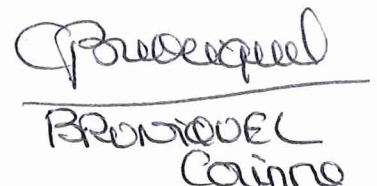 CBruniquel
BRUNIQUEL
Corinne